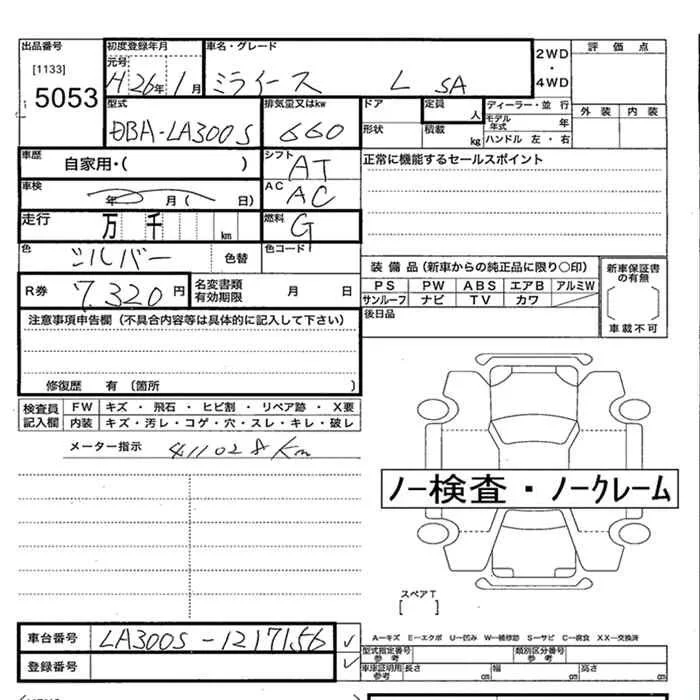 出品番号 初度登録年月 車名・グレード 2WD・4WD 評価点
[1133] 元号
5053 H 26年 1月 ミライース L SA
型式 排気量又はkw ドア 定員 人 ディーラー・並 行 外装 内装
DBA-LA300S 660 形状 積載 kg モデル年式 年
ハンドル 左・右
車歴 自家用・( ) シフト AT 正常に機能するセールスポイント
車検 年 月( 日) AC AC
走行 万 千 km 燃料 G
色 シルバー 色替 色コード
装備品(新車からの純正品に限り○印) 新車保証書の有無
R券 7,320円 名変書類有効期限 月 日 PS PW ABS エアB アルミW
サンルーフ ナビ TV カワ
注意事項申告欄(不具合内容等は具体的に記入して下さい) 後日品 車載不可
修復歴 有〔箇所 〕
検査員記入欄 FW キズ・飛石・ヒビ割・リペア跡・X要
内装 キズ・汚レ・コゲ・穴・スレ・キレ・破レ
メーター指示 411028Km
ノー検査・ノークレーム
スペアT
[ ]
車台番号 LA300S-1217156 ✓
A—キズ E—エクボ U—凹み W—補修跡 S—サビ C—腐食 XX—交換済
登録番号 ✓ 型式指定番号参考 類別区分番号参考
車庫証明用参考 長さ cm 幅 cm 高さ cm